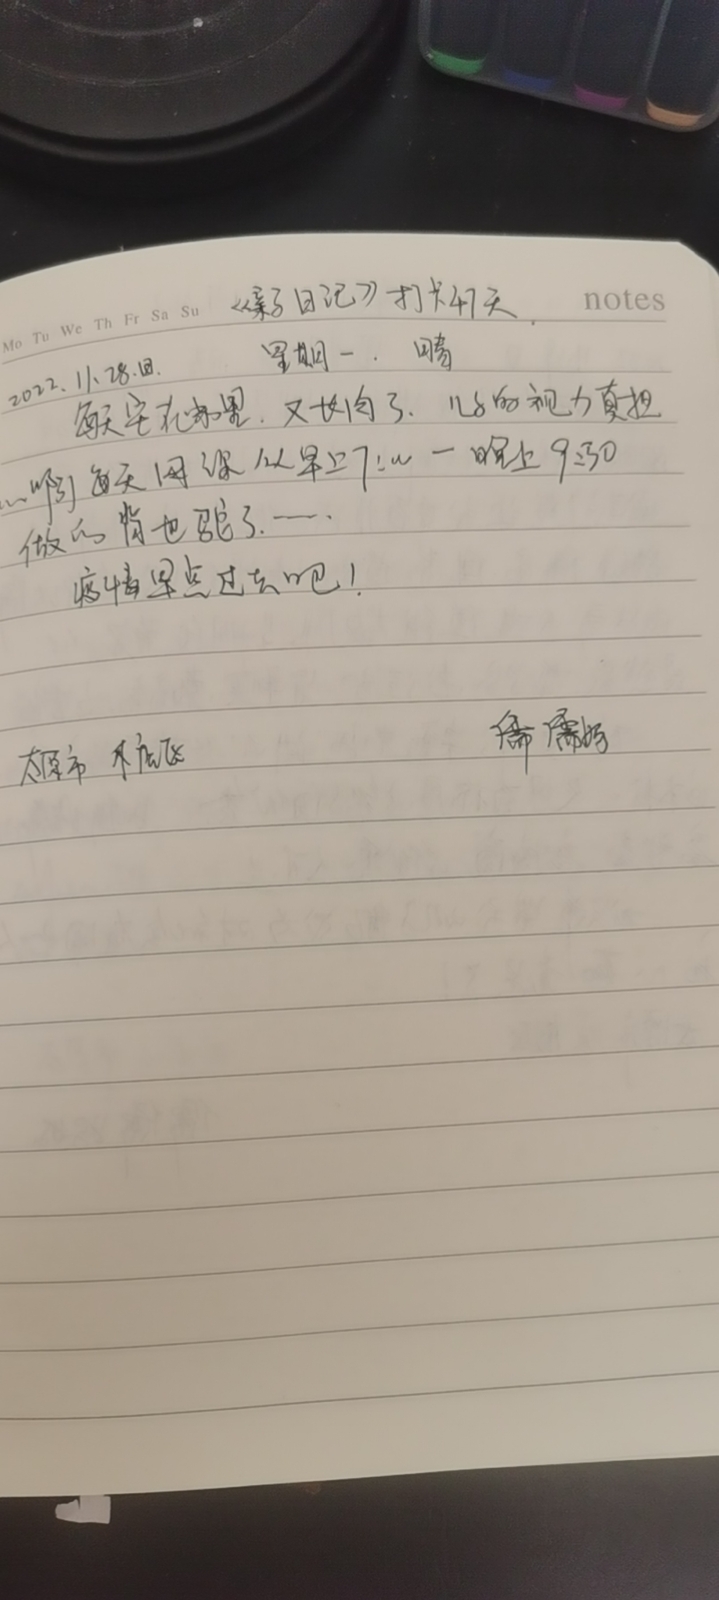 Mo Tu We Th Fr Sa Su 《亲子日记》打卡47天 notes
2022.11.28.日. 星期一. 晴
每天宅在家里.又长肉了.儿子的视力真担
心啊 每天网课从早上7:00—晚上9:50
做的背也驼了.——.
疫情早点过去吧!
太原市 儒儒妈